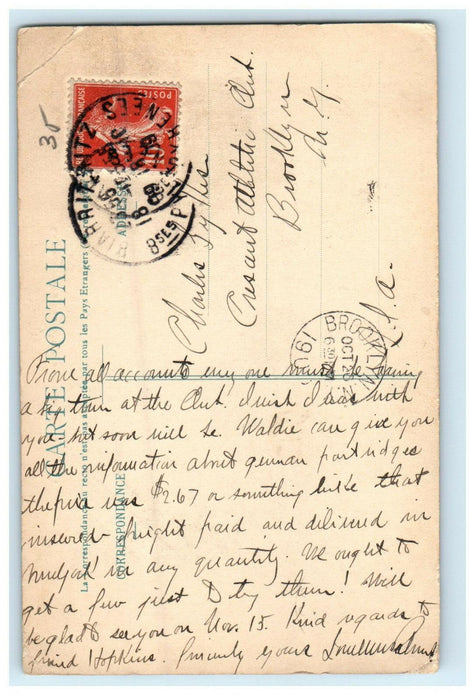 35
CARTE POSTALE
La correspondance au recto n'est pas acceptée par tous les Pays Etrangers
CORRESPONDANCE
ADRESSE
POSTES
FRANÇAISE
10
BIARRITZ
PYRENEES
Charles
Crescent Athletic Club.
Brooklyn
N.Y.
U.S.a.
BROOKLYN
OCT 25
1906
From all accounts every one must be having
a fine time at the Club. I wish I was with
you but soon will be. Waldie can give you
all the information about german partridges
the price was $2.67 or something like that
insured freight paid and delivered in
in any quantity. We ought to
get a few just to try them! Will
be glad to see you on Nov. 15. Kind regards to
friend Hopkins. Sincerely yours